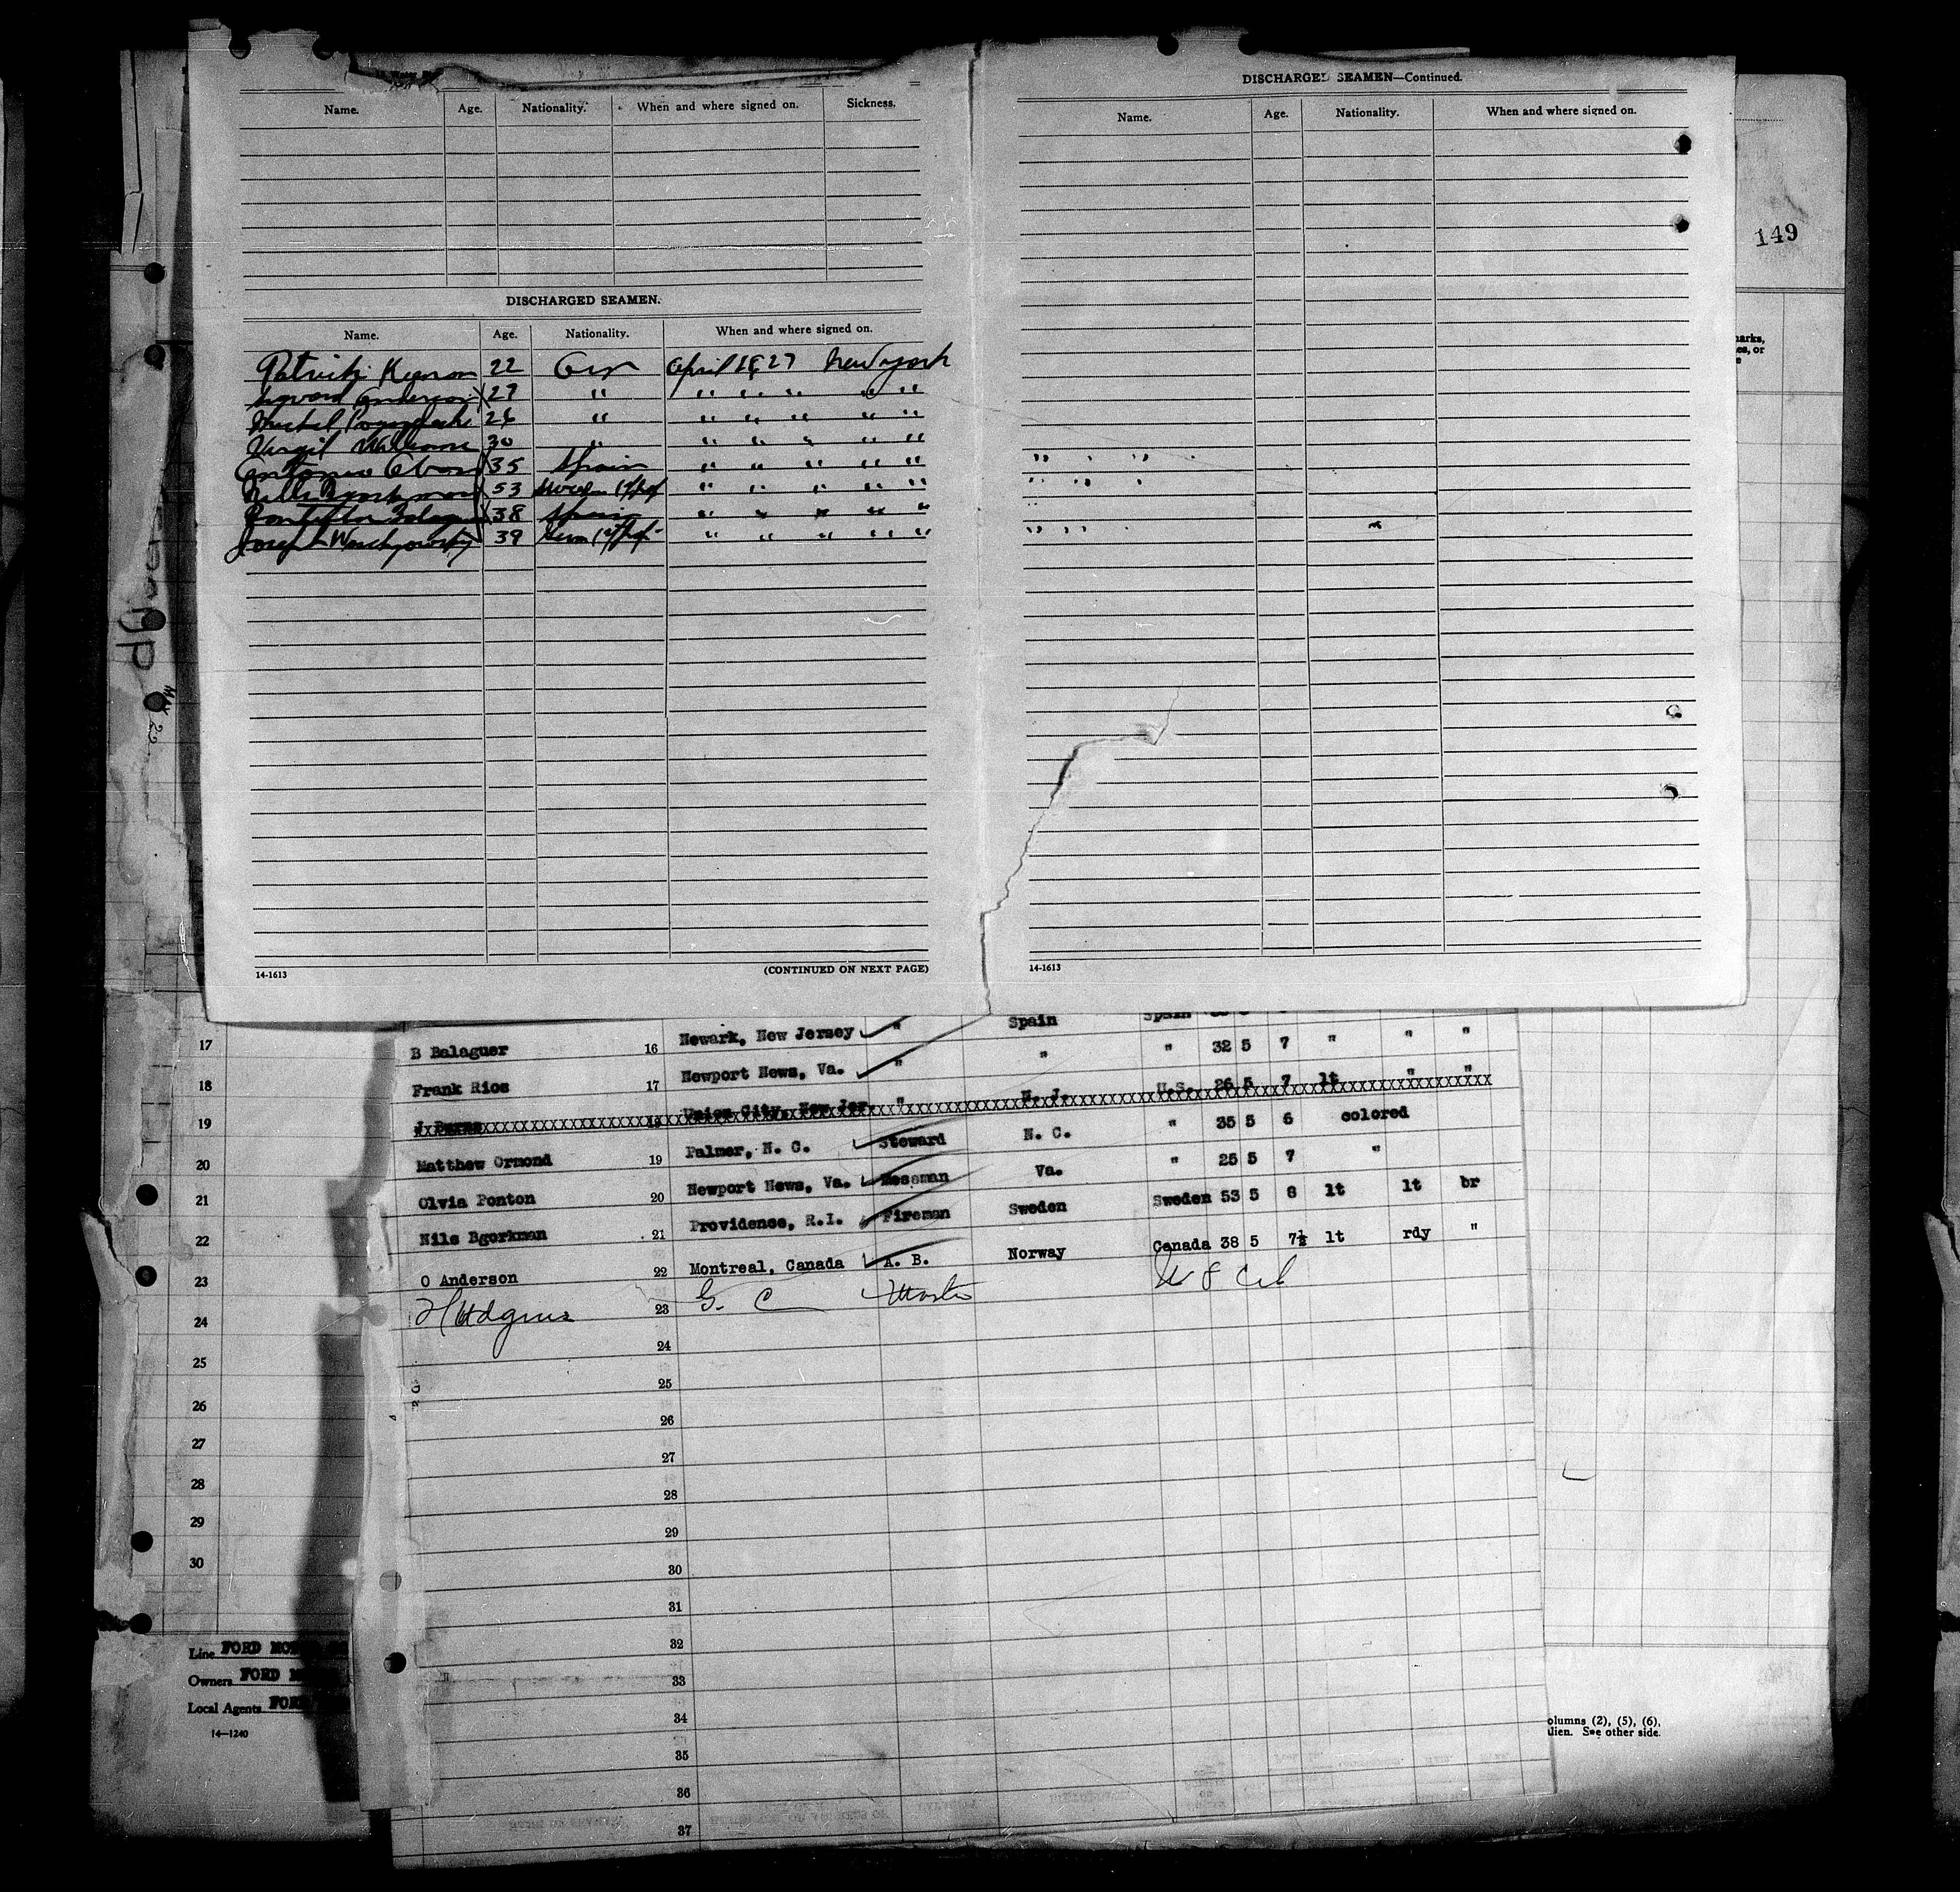 DISCHARGED SEAMEN—Continued.
Name. Age. Nationality. When and where signed on. Sickness.
Name. Age. Nationality. When and where signed on.
149
DISCHARGED SEAMEN.
Name. Age. Nationality. When and where signed on.
22 April 27 New York
27 " " " " " "
26 " " " " " "
Virgil Williams 30 " " " " " "
Antonio 35 Spain " " " " "
53 " " " " "
38 Spain " " " " "
Joseph 39 " " " " "
MAY 22
14-1613 (CONTINUED ON NEXT PAGE)
14-1613
17 B Balaguer 16 Newark, New Jersey " Spain Spain
18 Frank Rios 17 Newport News, Va. " " " 32 5 7 " " "
19 J Burns 18 Union City, New Jer. " N. J. U.S. 26 5 7 lt " "
20 Matthew Ormond 19 Palmer, N. C. Steward N. C. " 35 5 6 colored
21 Olvia Ponton 20 Newport News, Va. Messman Va. " 25 5 7 "
22 Nils Bgorkman 21 Providence, R.I. Fireman Sweden Sweden 53 5 8 lt lt br
23 O Anderson 22 Montreal, Canada A. B. Norway Canada 38 5 7½ lt rdy "
24 23 G. C Master
24
25 25
26 26
27 27
28 28
29 29
30 30
31
32
33
34
35
36
37
Line FORD MO
Owners FORD M
Local Agents FOR
14—1240
olumns (2), (5), (6),
lien. See other side.